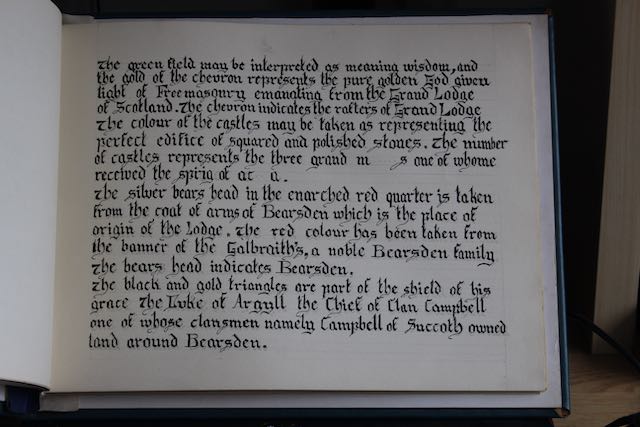 The green field may be interpreted as meaning wisdom, and
the gold of the chevron represents the pure golden God given
light of Freemasonry emanating from the Grand Lodge
of Scotland. The chevron indicates the rafters of Grand Lodge
The colour of the castles may be taken as representing the
perfect edifice of squared and polished stones. The number
of castles represents the three grand m s one of whome
received the sprig of ac a.
The silver bears head in the enarched red quarter is taken
from the coat of arms of Bearsden which is the place of
origin of the Lodge. The red colour has been taken from
the banner of the Galbraith's, a noble Bearsden family
The bears head indicates Bearsden.
The black and gold triangles are part of the shield of his
grace The Duke of Argyll the Chief of Clan Campbell
one of whose clansmen namely Campbell of Succoth owned
land around Bearsden.